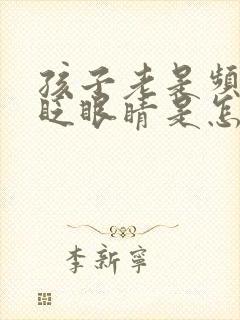 孩子老是頻
眨眼睛是怎
李新寧